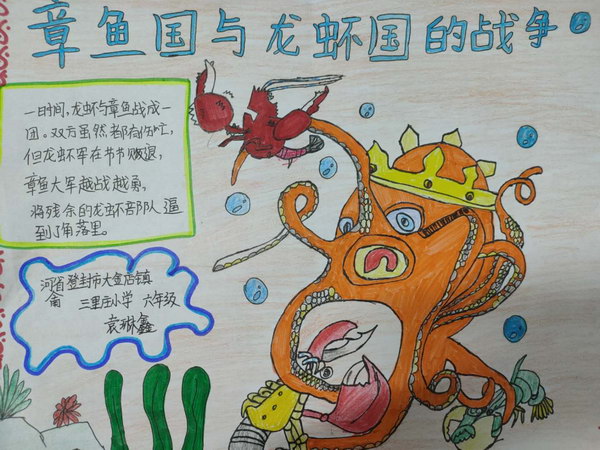 章鱼国与龙虾国的战争
一时间,龙虾与章鱼战成一
团。双方虽然都有伤亡,
但龙虾军在节节败退,
章鱼大军越战越勇,
将残余的龙虾部队逼
到了角落里。
河南省登封市大金店镇
三里庄小学 六年级
袁琳鑫